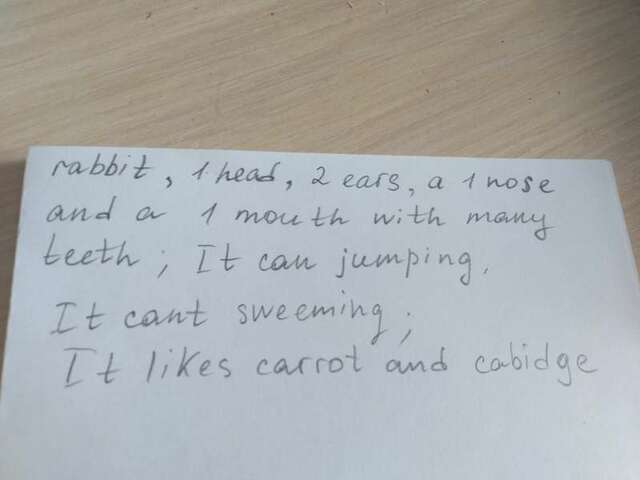 rabbit, 1 head, 2 ears, a 1 nose
and a 1 mouth with many
teeth; It can jumping,
It cant sweeming;
It likes carrot and cabidge